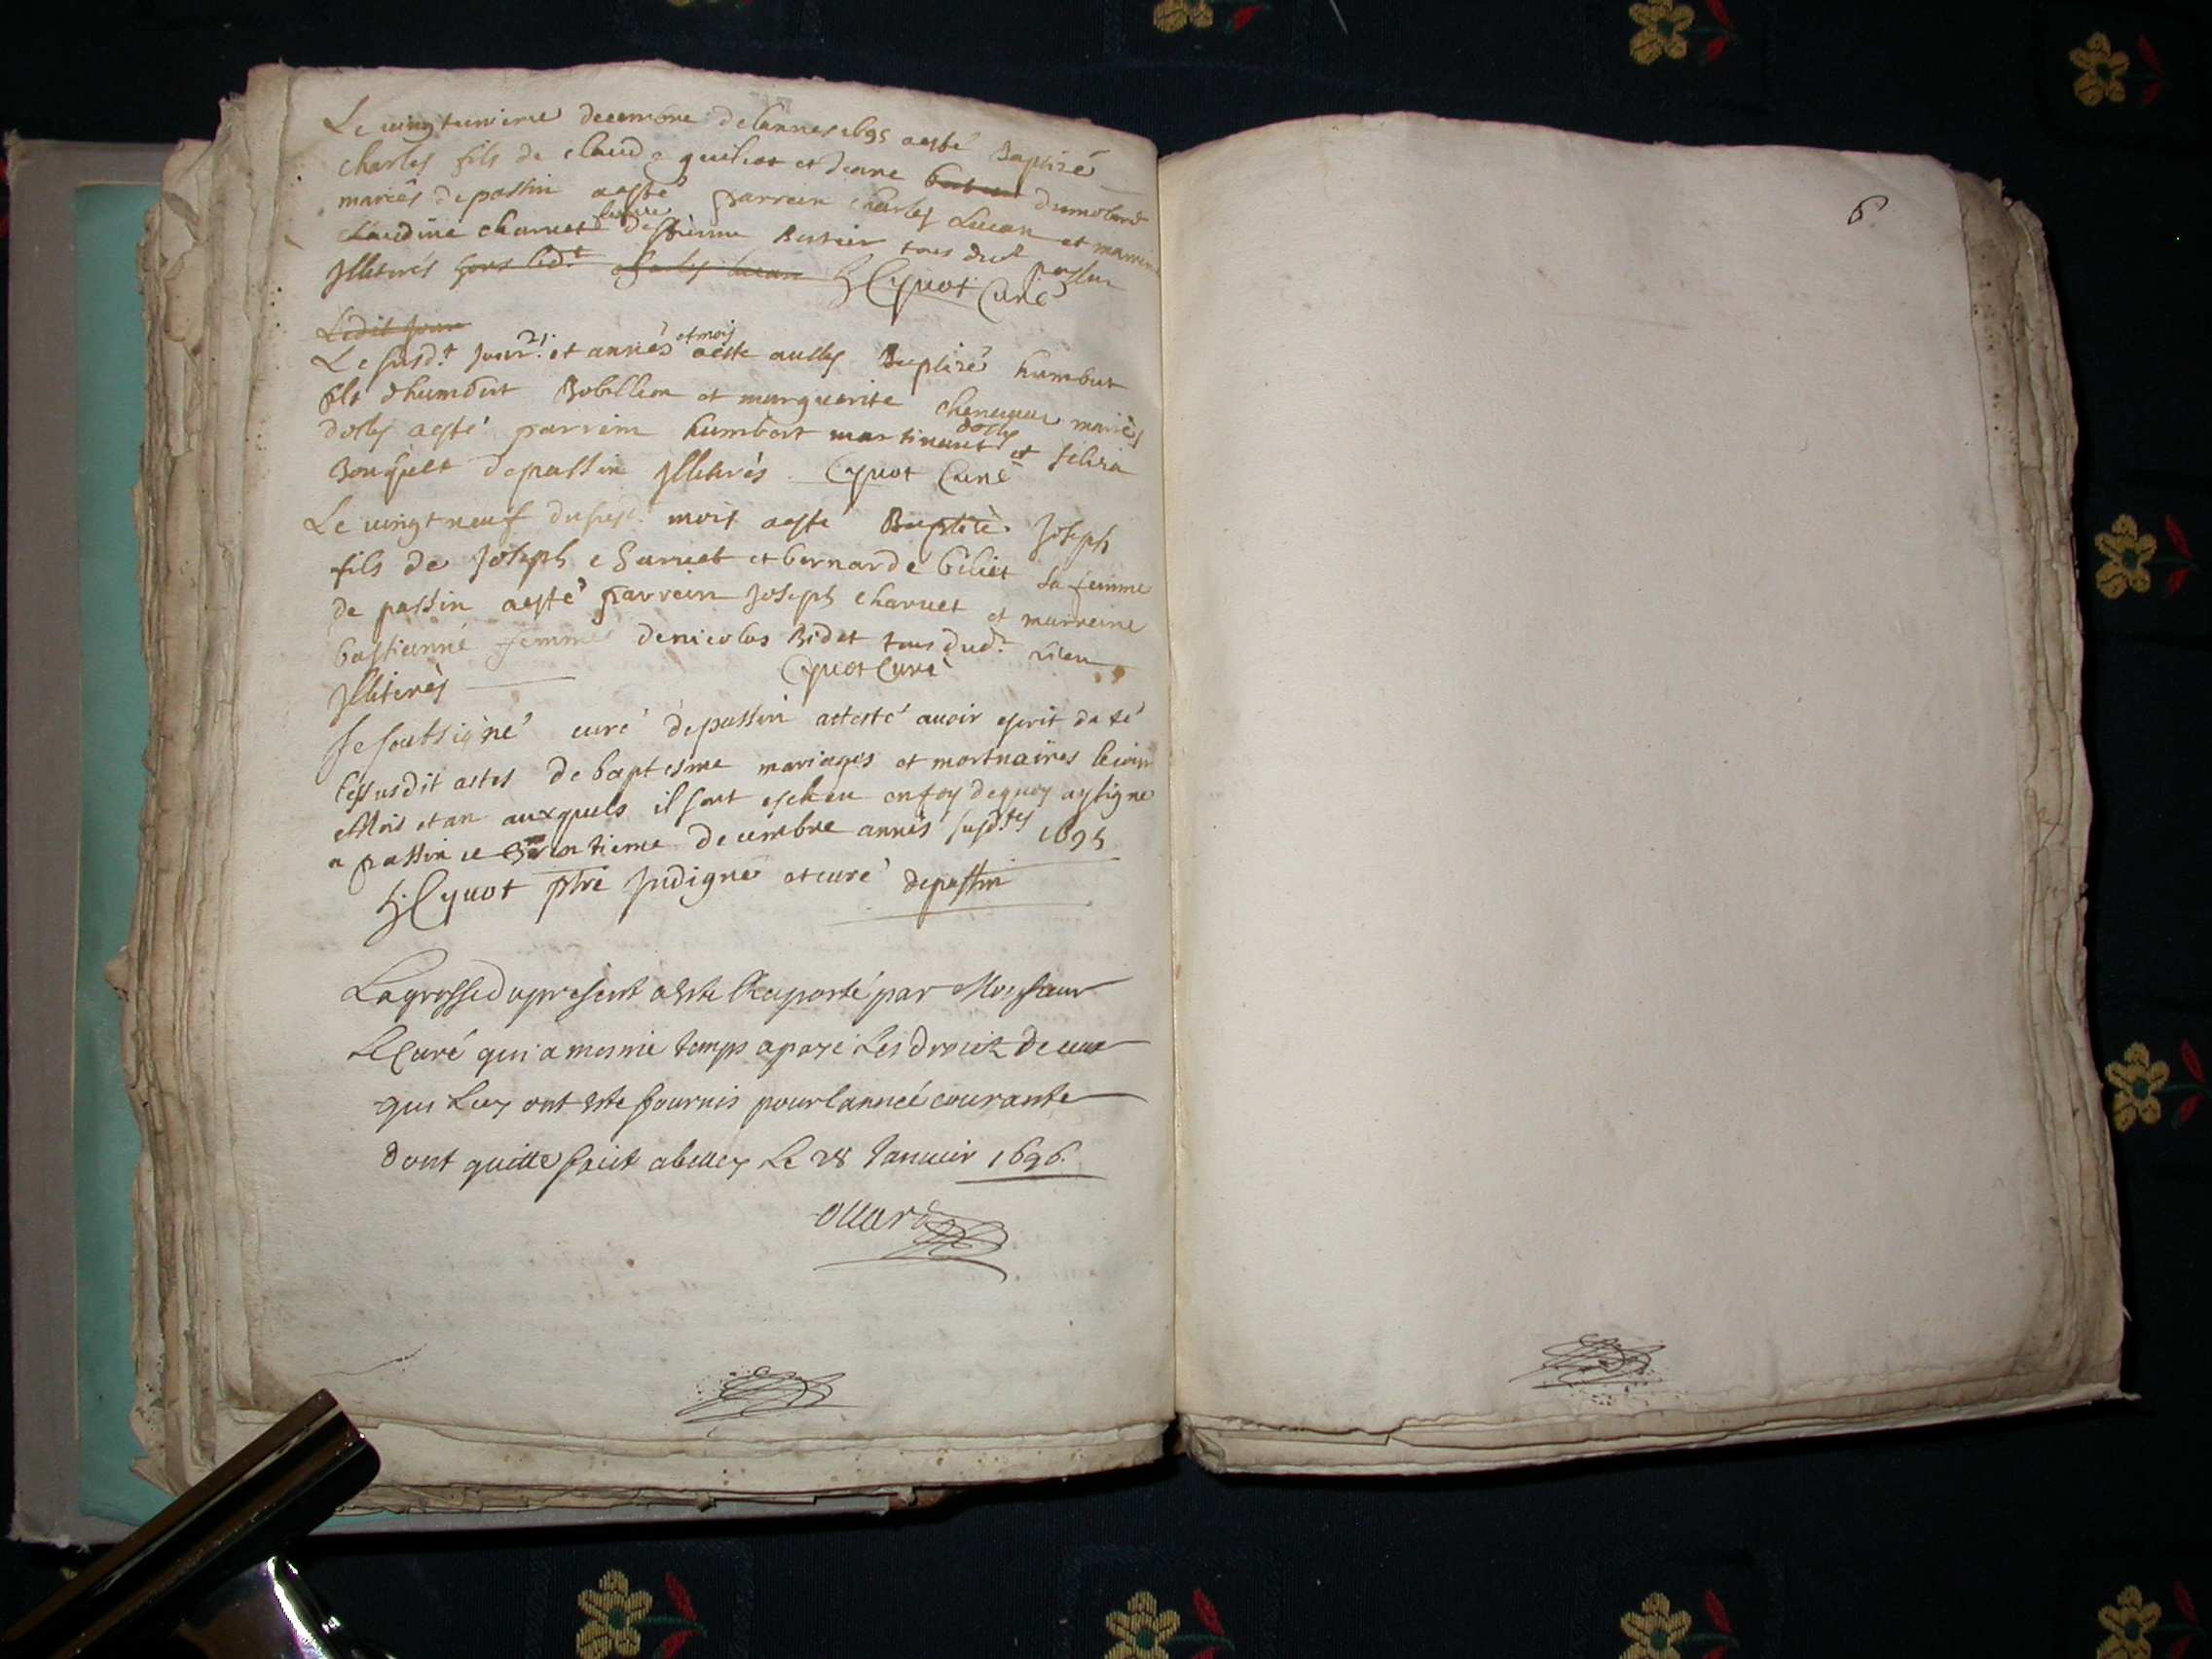 Le vingtunieme decembre de lannes 1695 aesté Baptisé
charles fils de claude guilliot et Jeane dumolard
mariés de passin aesté parrein charles Lucan et marreine
claudine charuet femme destienne Bertier tous dud passin
Jlliterés hors led.t charles lucan H Cyuot Curé
Ledit Jour
Le susd.t Jour 21. et annés et mois aeste aussy Baptisé humbert
fils dhumbert Bobillion et marguerite mariés
dossy aesté parrein humbert martinant dossy et
Bonquet depassin Jlliterés Cyuot Curé
Le vingt neuf du susd. mois aesté Baptisé Joseph
fils de Joseph charuet et bernarde biliet sa femme
de passin aesté parrein Joseph charuet et marreine
bastianne femme denicolas Bidat tous dud.t Lieu
Jlliterés Cyuot Curé
Je soubsigné curé depassin attesté auoir escrit daté
lessusdit actes de baptesme mariages et mortuaires le iour
Mois et an auxquels il sont escheu en foy dequoy aysigné
a passin ce trentieme decembre annés susd.tes 1695
H. Cyuot ptre Indigne et curé depassin
6
Lagrosse dupresent a Este Raporté par Monsieur
Le Curé qui a mesme temps a payé Les droictz de ceux
qui Luy ont Este fournis pour lanneé courante
dont quitte faict abelley Le 28 Januier 1696.